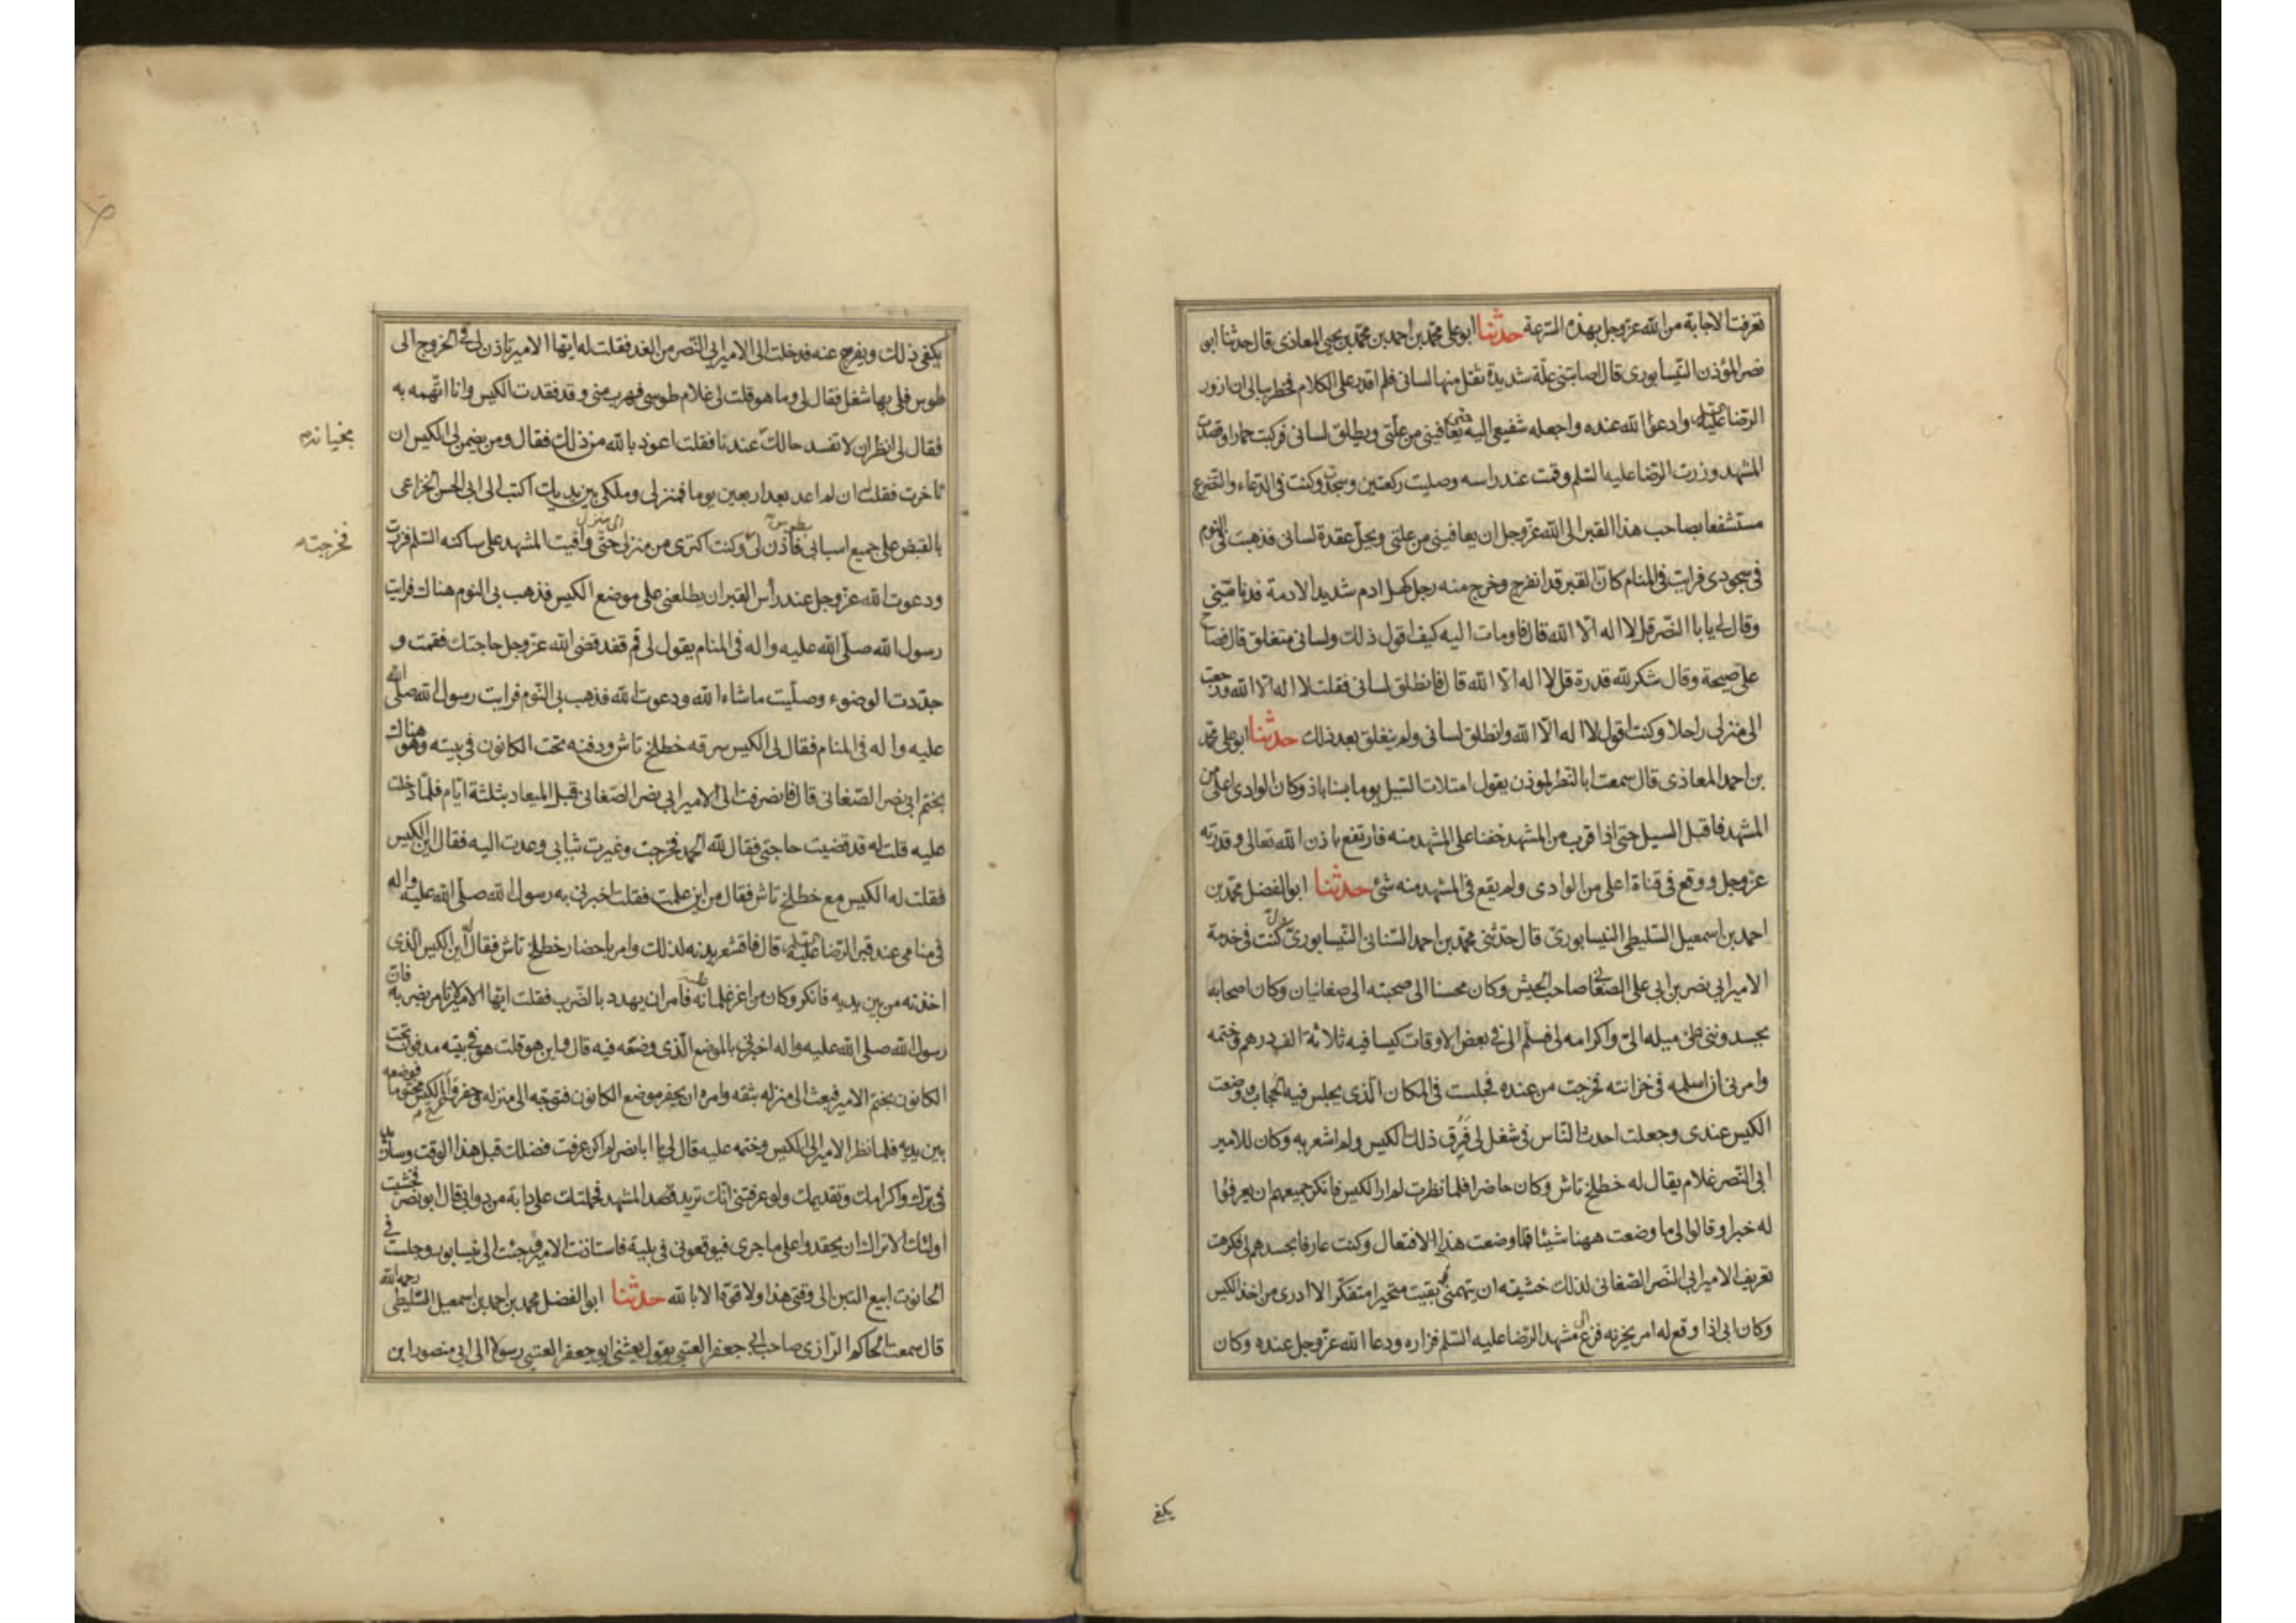 فعرفت الاجابة من الله عز وجل بهذه السرعة حدثنا ابو على محمد بن احمد بن محمد بن يحيى المعاذى قال حدثنا ابو
نصر المؤذن النيسابورى قال اصابتنى علة شديدة ثقل منها لسانى فلم اقدر على الكلام فخطر ببالى ان ازور
الرضا عليه السلم وادعو الله عنده واجعله شفيعى اليه حتى يعافينى من علتى ويطلق لسانى فركبت حمارا وقصدت
المشهد وزرت الرضا عليه السلم وقمت عند راسه وصليت ركعتين وسجدت وكنت فى الدعاء والتضرع
مستشفعا بصاحب هذا القبر الى الله عز وجل ان يعافينى من علتى ويحل عقدة لسانى فذهبت فى النوم
فى سجودى فرايت فى المنام كان القبر قد انفرج وخرج منه رجل كهل ادم شديد الادمة فدنا منى
وقال لى يا ابا النصر قل لا اله الا الله قال فاومات اليه كيف اقول ذلك ولسانى منغلق قال فصاح
على صيحة وقال تنكر لله قدرة قل لا اله الا الله قال فانطلق لسانى فقلت لا اله الا الله ورجعت
الى منزلى راجلا وكنت اقول لا اله الا الله وانطلق لسانى ولم ينغلق بعد ذلك حدثنا ابو على محمد
بن احمد المعاذى قال سمعت ابا النصر الموذن يقول امتلات السيل يوما بسناباذ وكان الوادى اعلى من
المشهد فاقبل السيل حتى اذا قرب من المشهد خفنا على المشهد منه فارتفع باذن الله تعالى وقدرته
عز وجل ووقع فى قناة اعلى من الوادى ولم يقع فى المشهد منه شئ حدثنا ابو الفضل محمد بن
احمد بن اسمعيل السليطى النيسابورى قال حدثنى محمد بن احمد السنانى النيسابورى قال كنت فى خدمة
الامير ابى نصر بن ابى على الصغانى صاحب الجيش وكان محسنا الى صحبته الى صغانيان وكان اصحابه
يحسدوننى على ميله الى واكرامه لى فسلم الى فى بعض الاوقات كيسا فيه ثلاثة الف درهم وختمه
وامرنى ان اسلمه فى خزانته فخرجت من عنده فجلست فى المكان الذى يجلس فيه الحجاب ووضعت
الكيس عندى وجعلت احدث الناس فى شغل لى فسرق ذلك الكيس ولم اشعر به وكان للامير
ابى النصر غلام يقال له خطلخ تاش وكان حاضرا فلما نظرت لم ار الكيس فانكر جميعهم ان يعرفوا
له خبرا وقالوا لى ما وضعت ههنا شيئا فما وضعت هذا الا افتعال وكنت عارفا بحسدهم لى فكرهت
تعريف الامير ابى النصر الصغانى لذلك خشيته ان يتهمنى فبقيت متحيرا متفكرا لا ادرى من اخذ الكيس
وكان ابى اذا وقع له امر يحزنه فزع الى مشهد الرضا عليه السلم فزاره ودعا الله عز وجل عنده وكان
يكفى
يكفى ذلك ويفرج عنه فدخلت الى الامير ابى النصر من الغد فقلت له ايها الامير تاذن لى فى الخروج الى
طوس فلى بها شغل فقال لى وما هو قلت لى غلام طوسى فهرب منى وقد فقدت الكيس وانا اتهمه به
فقال لى انظر ان لا تفسد حالك عندنا فقلت اعوذ بالله من ذلك فقال ومن يضمن لى الكيس ان
تاخرت فقلت ان لم اعد بعد اربعين يوما فمنزلى وملكى بين يديك اكتب الى ابى الحسن الخزاعى
بالقبض على جميع اسبابى بطوس فاذن لى وكنت اكترى من منزل الى منزل حتى وافيت المشهد على ساكنه السلم فزرت
فخرجته
ودعوت الله عز وجل عند رأس القبر ان يطلعنى على موضع الكيس فذهب بى النوم هناك فرايت
رسول الله صلى الله عليه واله فى المنام يقول لى قم فقد قضى الله عز وجل حاجتك فقمت و
جددت الوضوء وصليت ما شاء الله ودعوت الله فذهب بى النوم فرايت رسول الله صلى الله
عليه واله فى المنام فقال لى الكيس سرقه خطلخ تاش ودفنه تحت الكانون فى بيته وهو هناك
بختم ابى نصر الصغانى قال فانصرفت الى الامير ابى نصر الصغانى قبل الميعاد بثلثة ايام فلما دخلت
عليه قلت له قد قضيت حاجتى فقال لله الحمد فخرجت وغيرت ثيابى وعدت اليه فقال اين الكيس
فقلت له الكيس مع خطلخ تاش فقال من اين علمت فقلت اخبرنى به رسول الله صلى الله عليه واله
فى منامى عند قبر الرضا عليه السلم قال فاقشعر بدنه لذلك وامر باحضار خطلخ تاش فقال له اين الكيس الذى
اخذته من بين يديه فانكر وكان من اعز غلمانه فامر ان يهدد بالضرب فقلت ايها الامير لا تامر بضربه فان
رسول الله صلى الله عليه واله اخبرنى بالموضع الذى وضعه فيه قال واين هو قلت هو فى بيته مدفون تحت
الكانون بختم الامير فبعث الى منزله بثقه وامره ان يحفر موضع الكانون فتوجه الى منزله وحفر واخرج الكيس مختوما فوضعه
بين يديه فلما نظر الامير الى الكيس وختمه عليه قال لى يا ابا نصر لم اكن عرفت فضلك قبل هذا الوقت وسازيد
فى برك واكرامك وتقديمك ولو عرفتنى انك تريد قصد المشهد لحملتك على دابة من دوابى قال ابو نصر فخشيت
اولئك الاتراك ان يحقدوا على ما جرى فيوقعونى فى بلية فاستاذنت الامير وجئت الى نيسابور وجلست فى
الحانوت ابيع التبن الى وقتى هذا ولا قوة الا بالله حدثنا ابو الفضل محمد بن احمد بن اسمعيل السليطى رحمه الله
قال سمعت الحاكم الرازى صاحب ابى جعفر العتبى يقول بعثنى ابو جعفر العتبى رسولا الى ابى منصور ابن